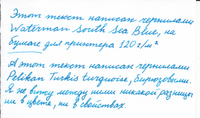 Этот текст написан чернилами
Waterman South Sea Blue, на
бумаге для принтера 120 г/м²
А этот текст написан чернилами
Pelikan Turkis turquoise, бирюзовыми.
Я не вижу между ними никакой разницы
ни в цвете, ни в свойствах.